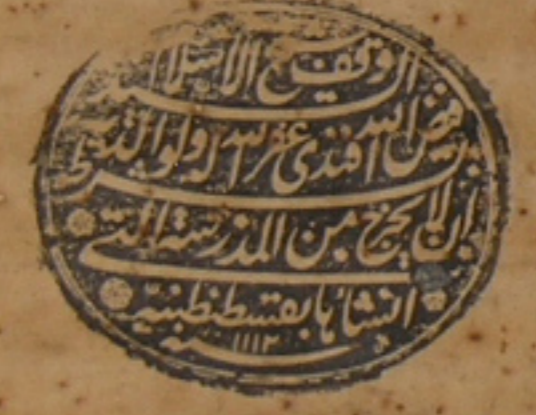 وقف شيخ الاسلام
فيض الله افندى غفر الله له ولوالديه
بشرط ان لا يخرج من المدرسة التى
انشأها بقسطنطينية
سنة ١١١٢